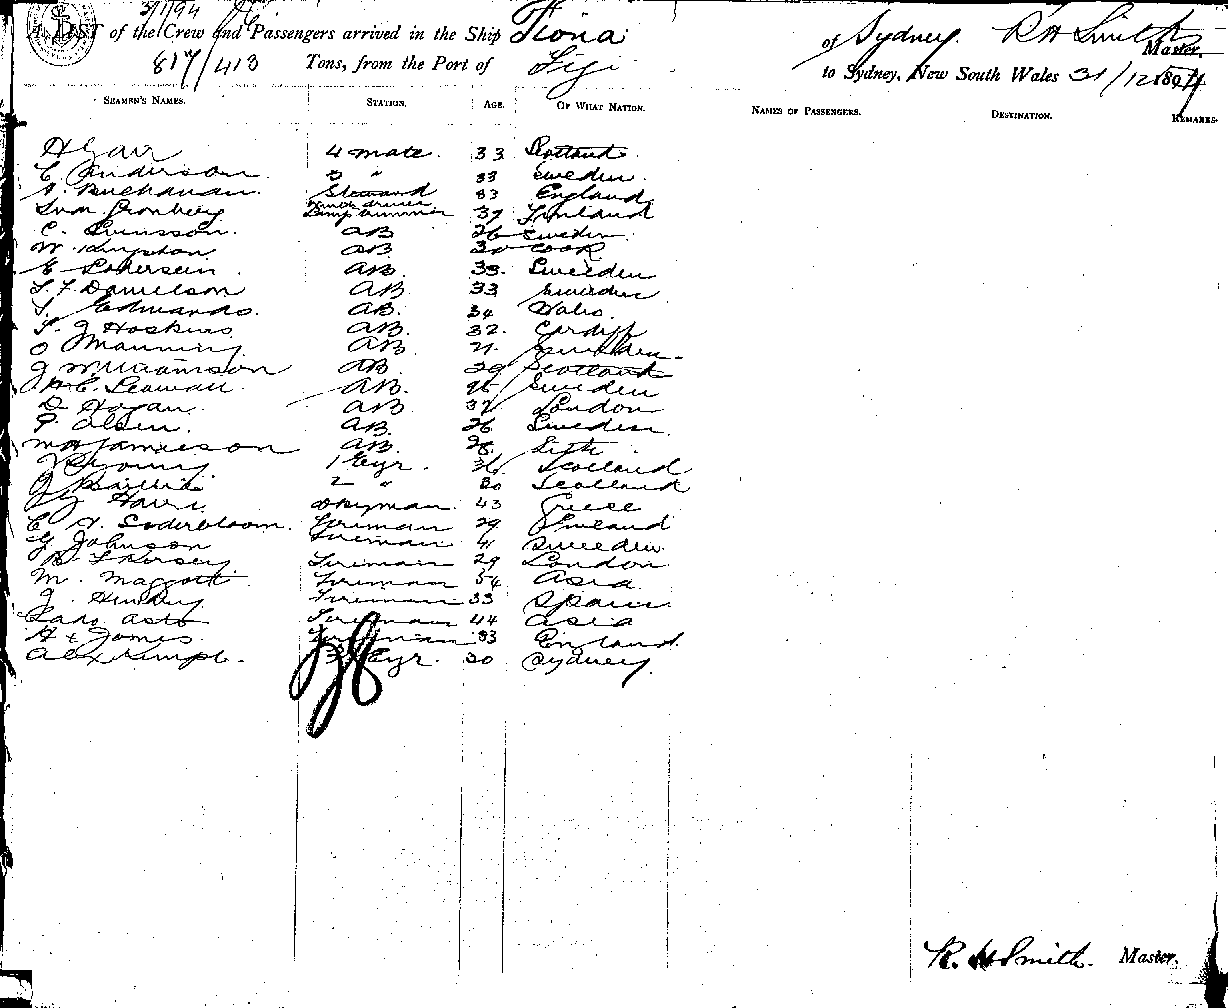 3/1/94
A LIST of the Crew and Passengers arrived in the Ship Fiona of Sydney. R H Smith Master,
817/413 Tons, from the Port of Fiji to Sydney, New South Wales 31/12 1894
SEAMEN'S NAMES. STATION. AGE. OF WHAT NATION. NAMES OF PASSENGERS. DESTINATION. REMARKS.
4 mate. 33 Scotland
C Anderson. 3 " 33 Sweden.
A. Buchanan. Steward 33 England
Gronberg Lamp trimmer 37 Finland
C. Svensson. AB 26 Sweden.
W. Kingston AB 30 Cook
AB. 33. Sweden
Danielson AB. 33 Sweden
Edmands. AB. 34 Wales.
J Hoskins AB. 32. Cardiff
O Manning. AB 21.
J Williamson AB. 29 Scotland
Seaman. AB. Sweden
D Hogan. AB 37 London
P. Olsen. AB. 26 Sweden.
Jamieson AB. 28. Leith
J Young 1 Egr. 36 Scotland
J Baillie 2 " 30 Scotland
43 Greece
C A. Soderbloom. Fireman 29 Finland
G Johnson Fireman 41 Sweden.
Fireman 29 London
M. Maggott Fireman 54 Asia
J. Fireman 33 Spain
Fireman 44 Asia
James. Fireman 33 England.
Alex Kempt. 3 Egr. 30 Sydney.
R. H Smith. Master.